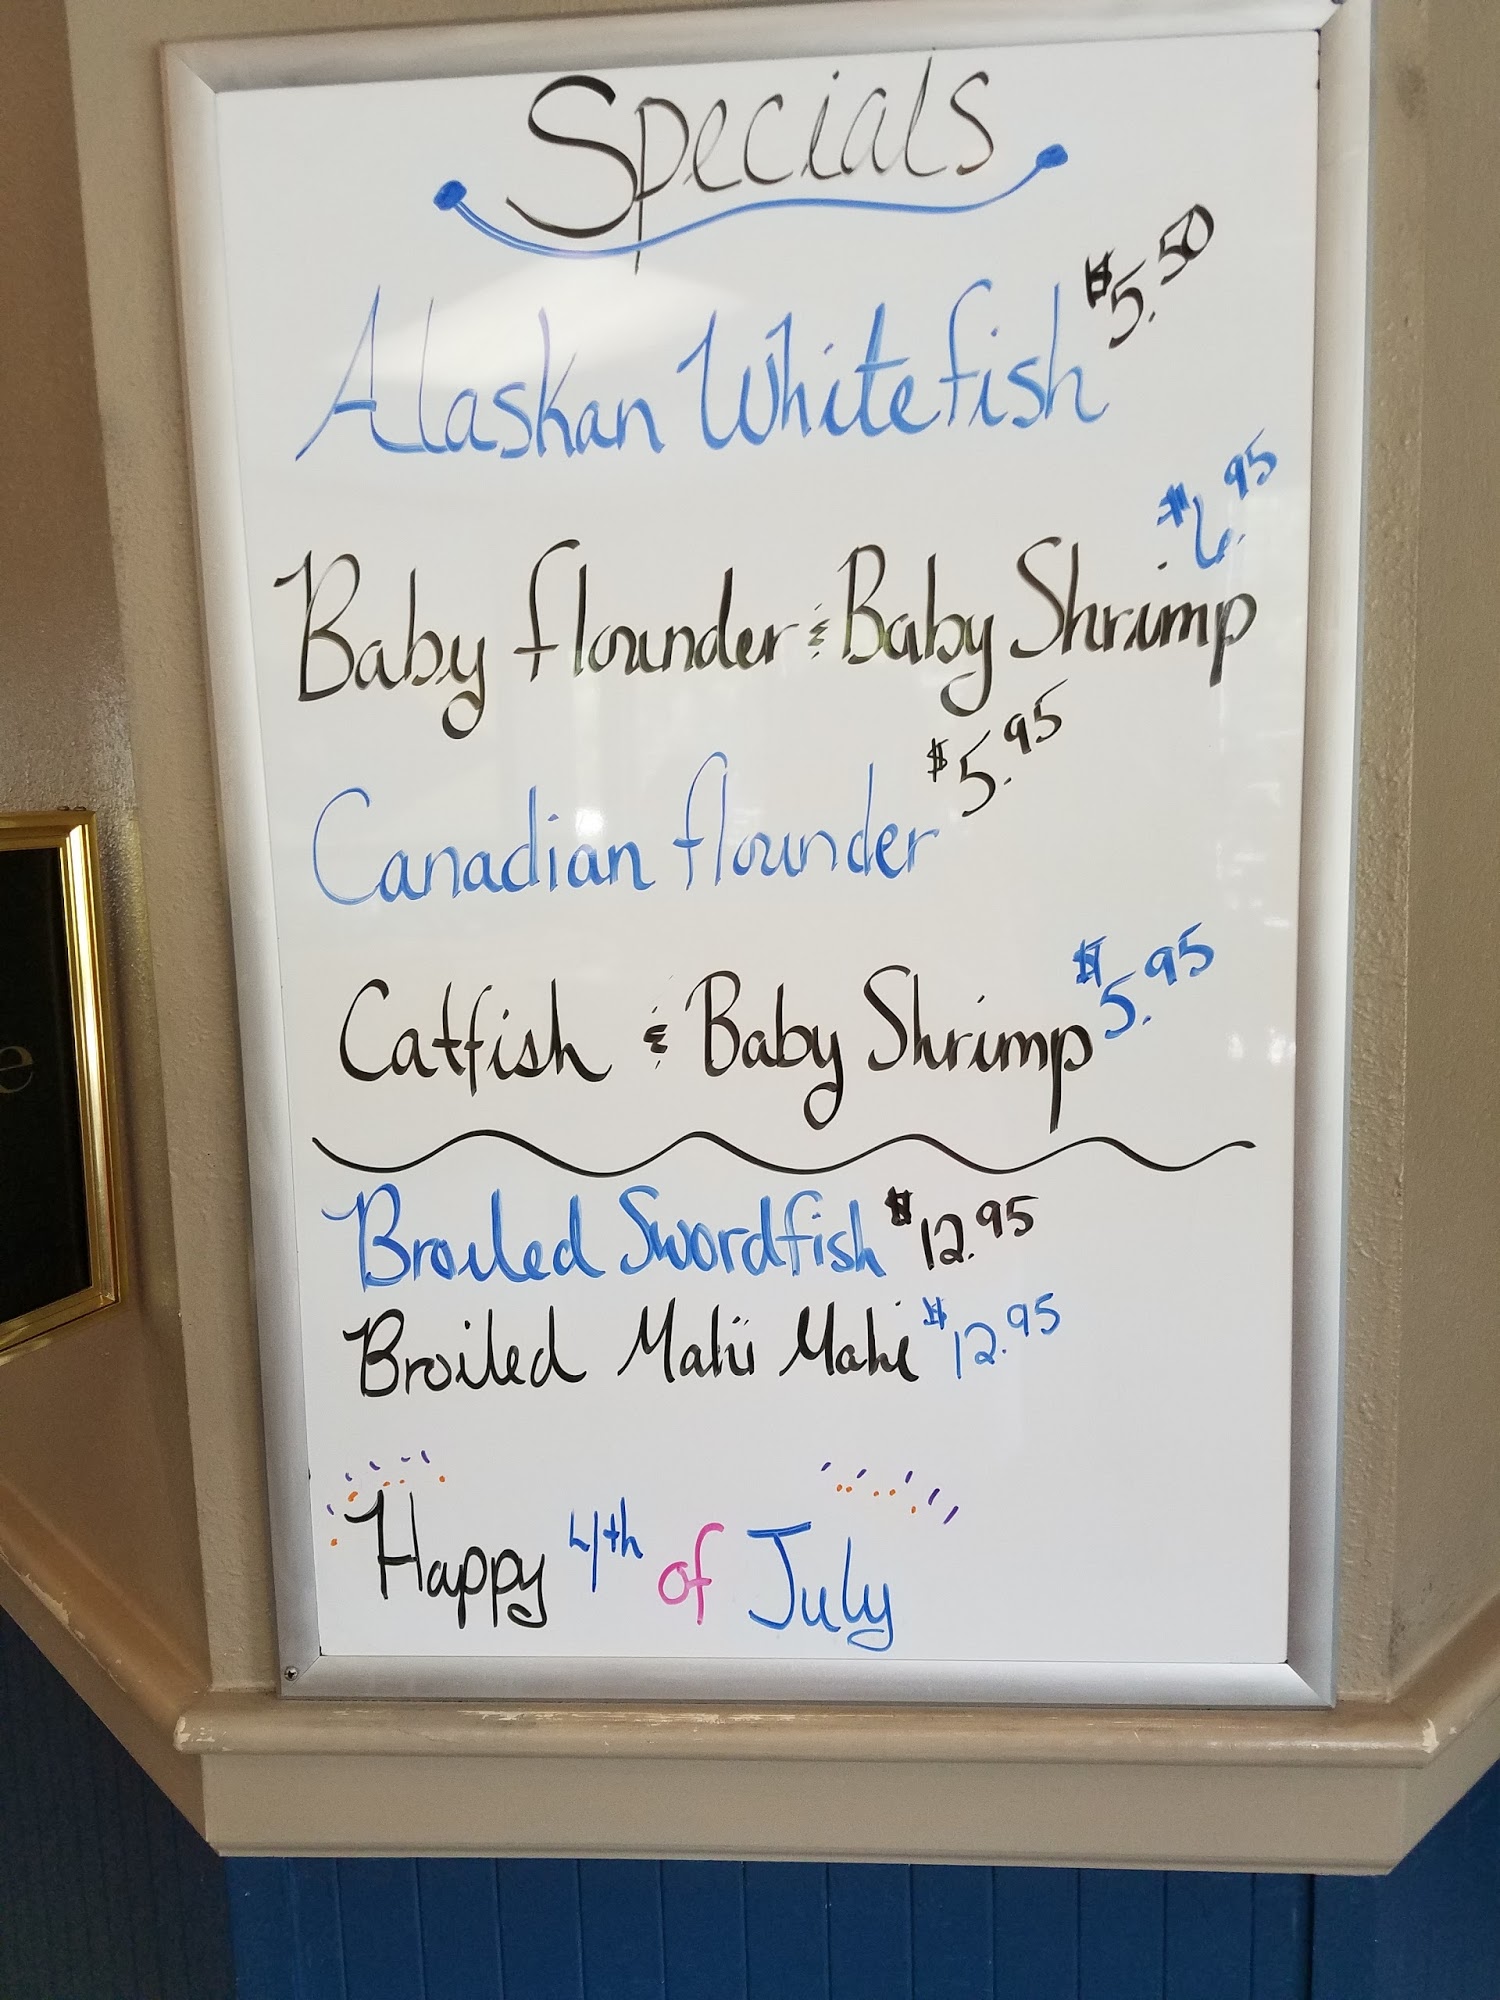 Specials
Alaskan Whitefish $5.50
Baby flounder & Baby Shrimp $6.95
Canadian flounder $5.95
Catfish & Baby Shrimp $5.95
Broiled Swordfish $12.95
Broiled Mahi Mahi $12.95
Happy 4th of July
e